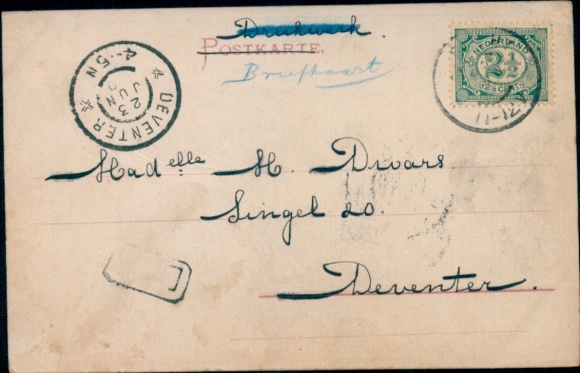 Drukwerk
POSTKARTE.
Briefkaart
NEDERLAND
2½
CENT
11-12
4-5N
23
JUN
DEVENTER
Madelle M. Divars
Singel 20.
Deventer.